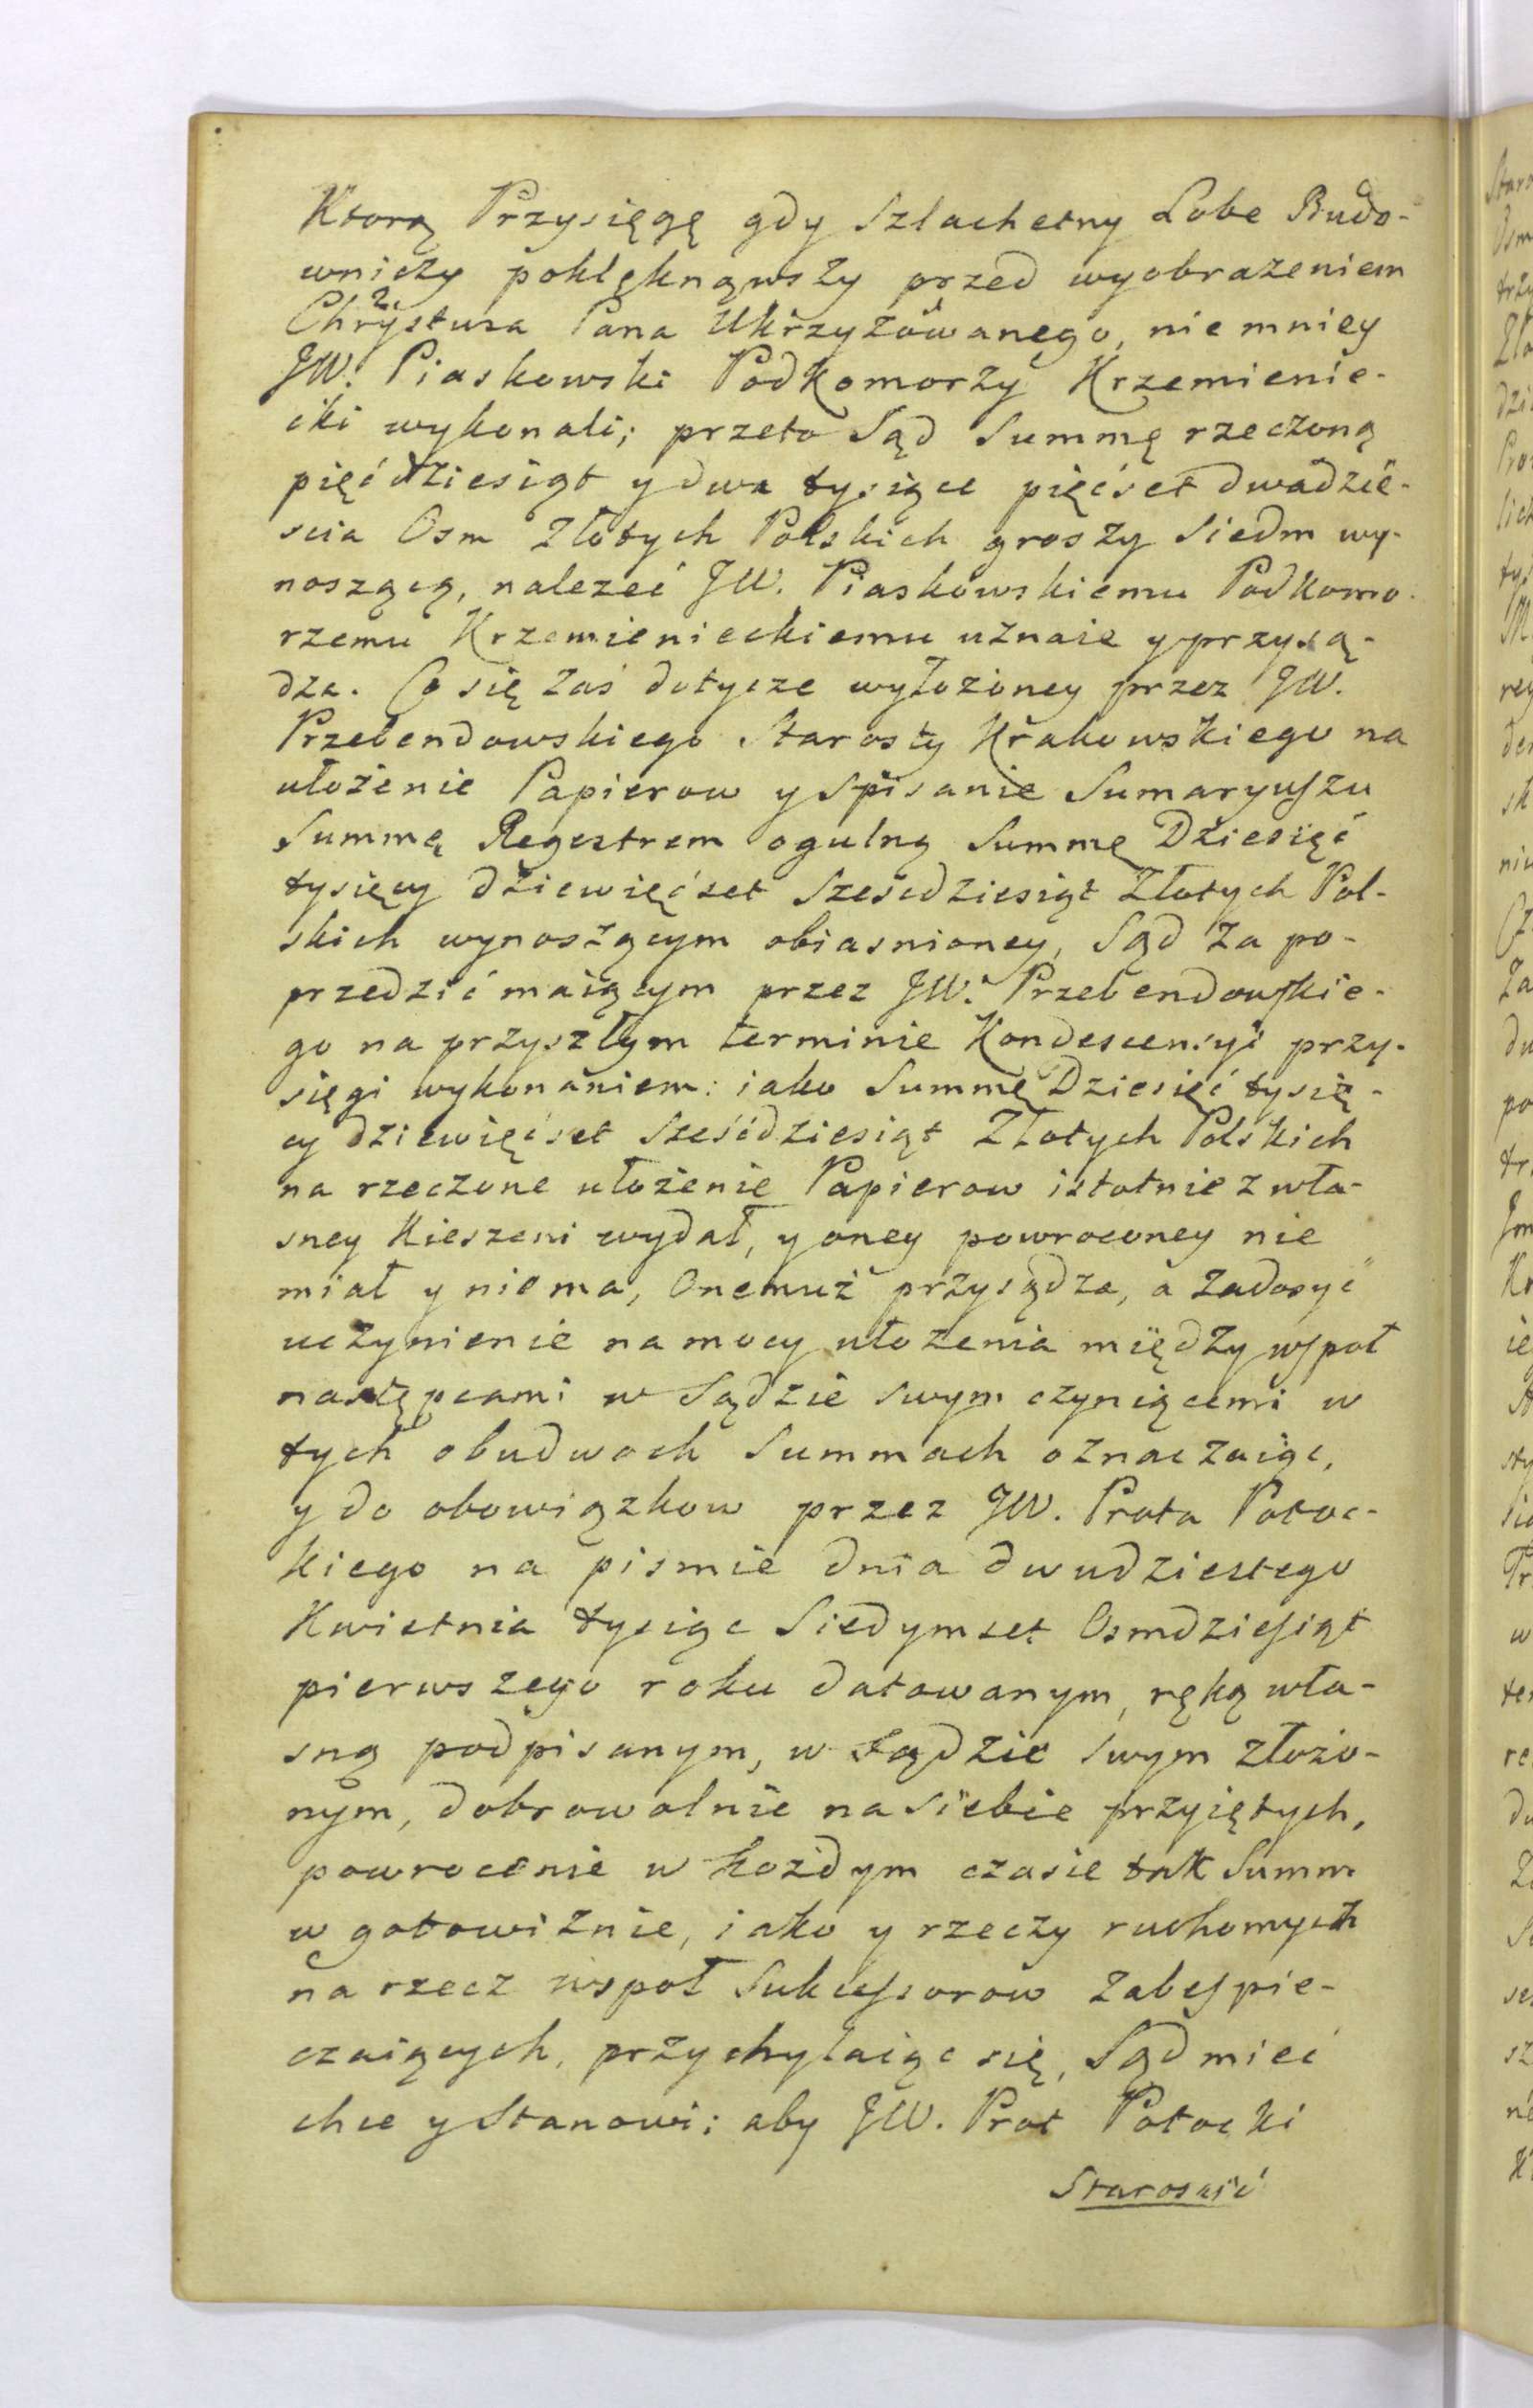 Ktorą Przysięgę gdy Szlachetny Lobe Budo-
wniczy poklęknąwszy przed wyobrazeniem
Chrystusa Pana Ukrzyżowanego, niemniey
JW. Piaskowski Podkomorzy Krzemienie-
cki wykonali; przeto Sąd Summę rzeczoną
pięćdziesiąt y dwa tysiące pięćset dwadzie-
scia Osm Złotych Polskich groszy Siedm wy-
noszącą, nalezeć JW. Piaskowskiemu Podkomo-
rzemu Krzemienieckiemu uznaie y przysą-
dza. Co się zaś dotycze wyłożoney przez JW.
Przebendowskiego Starosty Krakowskiego na
ułożenie Papierow y Spisanie Sumaryuszu
Summę Regestrem ogulną Summę Dziesięć
tysięcy dziewięćset Sześćdziesiąt Złotych Pol-
skich wynoszącym obiasnioney, Sąd za po-
przedzić maiącym przez JW. Przebendowskie-
go na przyszłym terminie Kondescensyi przy-
sięgi wykonaniem: iako Summę Dziesięć tysię-
cy dziewięćset Sześćdziesiąt Złotych Polskich
na rzeczone ułożenie Papierow istotnie z wła-
sney Kieszeni wydał, y oney powroconey nie
miał y niema, Onemuż przysądza, a zadosyć
uczynienie na mocy ułozenia między wspoł
następcami w Sądzie swym czyniącemi w
tych obudwoch Summach oznaczaiąc,
y do obowiązkow przez JW. Prota Potoc-
kiego na pismie dnia dwudziestego
Kwietnia tysiąc Siedymset Osmdziesiąt
pierwszego roku datowanym, ręką wła-
sną podpisanym, w Sądzie swym złożo-
nym, dobrowolnie na siebie przyiętych,
powrocenie w kożdym czasie tak Summ
w gotowiznie, iako y rzeczy ruchomych
na rzecz wspoł Sukcessorow zabespie-
czaiących, przychylaiąc się, Sąd mieć
chce y Stanowi; aby JW. Prot Potocki
Starosić